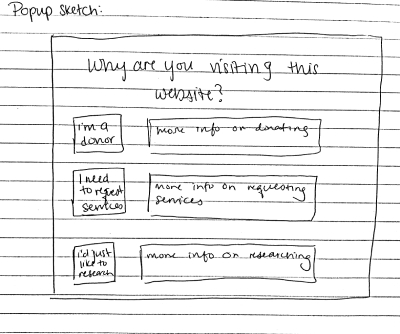 Popup sketch:
Why are you visiting this
website?
i'm a
donor
more info on donating
I need
to request
services
more info on requesting
services
i'd just
like to
research
more info on researching